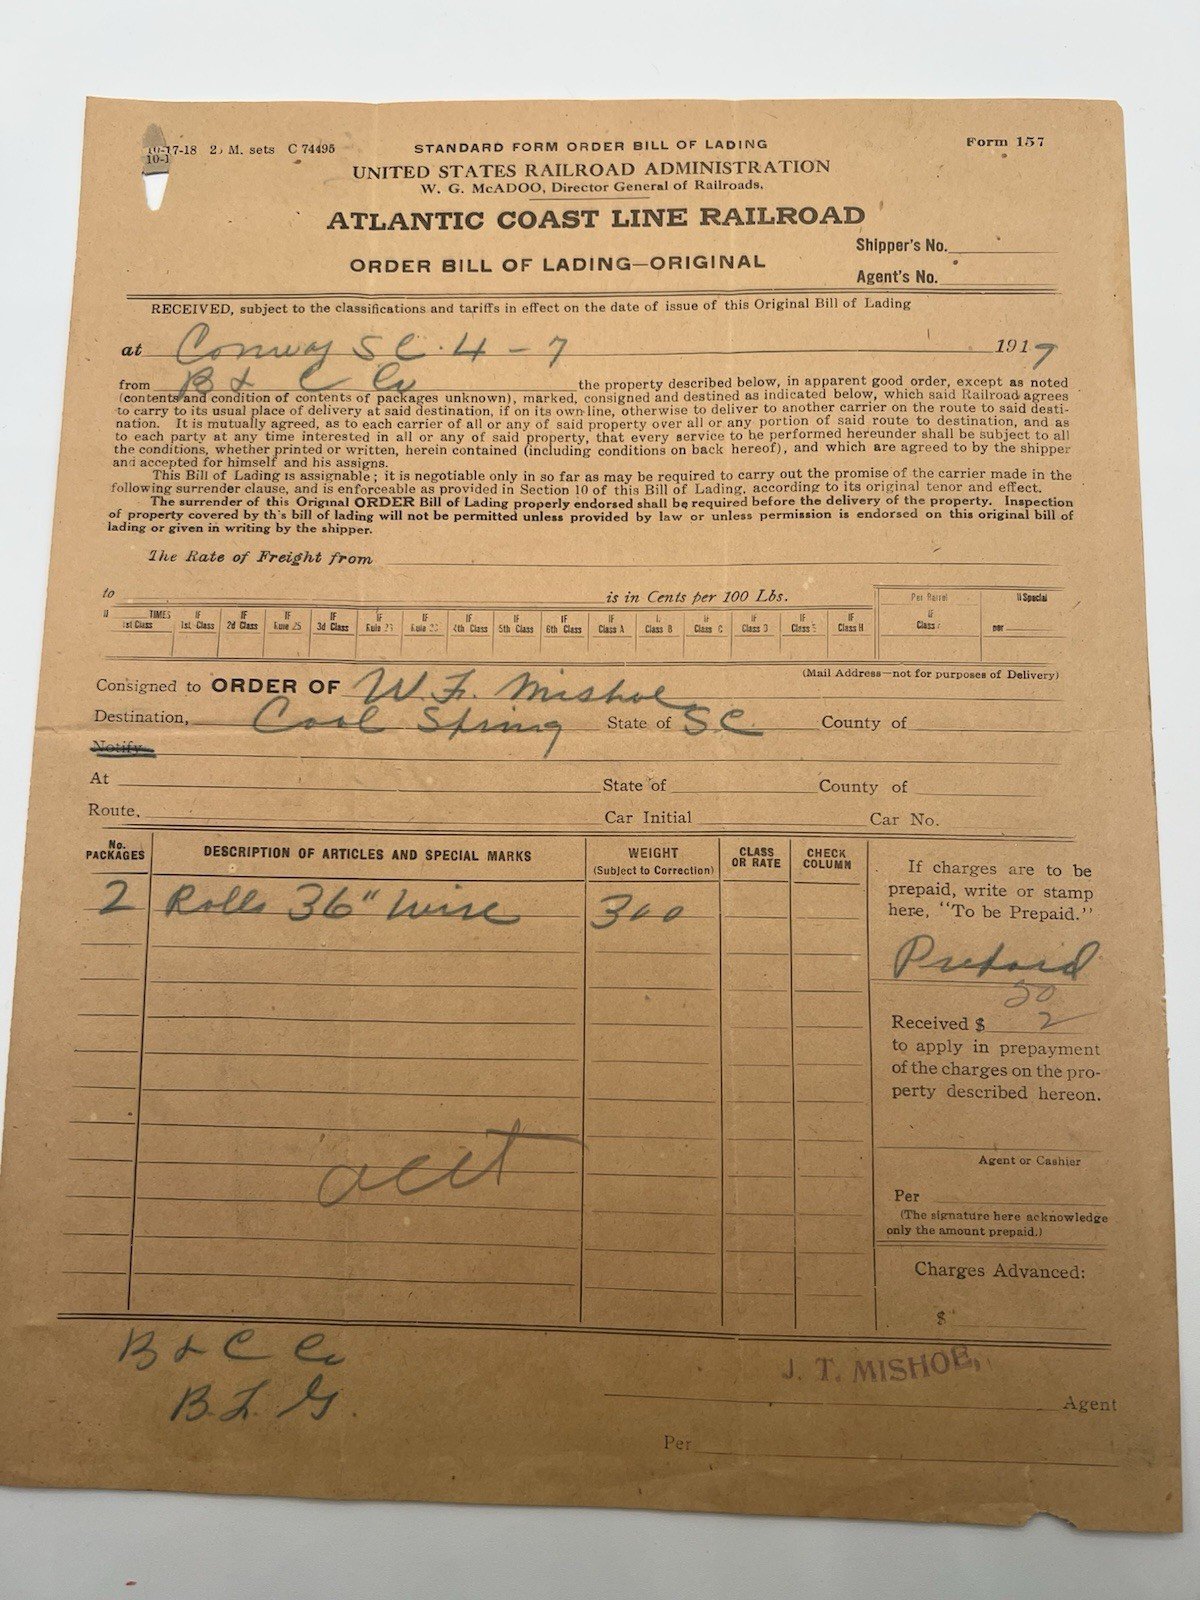 10-17-18 2 M. sets C 74495
10-1
STANDARD FORM ORDER BILL OF LADING
Form 157
UNITED STATES RAILROAD ADMINISTRATION
W. G. McADOO, Director General of Railroads.
ATLANTIC COAST LINE RAILROAD
Shipper's No.
ORDER BILL OF LADING—ORIGINAL
Agent's No.
RECEIVED, subject to the classifications and tariffs in effect on the date of issue of this Original Bill of Lading
at Conway S C. 4 - 7 191
from B & C Co the property described below, in apparent good order, except as noted
(contents and condition of contents of packages unknown), marked, consigned and destined as indicated below, which said Railroad agrees
to carry to its usual place of delivery at said destination, if on its own line, otherwise to deliver to another carrier on the route to said desti-
nation. It is mutually agreed, as to each carrier of all or any of said property over all or any portion of said route to destination, and as
to each party at any time interested in all or any of said property, that every service to be performed hereunder shall be subject to all
the conditions, whether printed or written, herein contained (including conditions on back hereof), and which are agreed to by the shipper
and accepted for himself and his assigns.
This Bill of Lading is assignable; it is negotiable only in so far as may be required to carry out the promise of the carrier made in the
following surrender clause, and is enforceable as provided in Section 10 of this Bill of Lading, according to its original tenor and effect.
The surrender of this Original ORDER Bill of Lading properly endorsed shall be required before the delivery of the property. Inspection
of property covered by th's bill of lading will not be permitted unless provided by law or unless permission is endorsed on this original bill of
lading or given in writing by the shipper.
The Rate of Freight from
to is in Cents per 100 Lbs.
IF TIMES 1st Class
IF 1st Class
IF 2d Class
IF Rule 25
IF 3d Class
IF Rule
IF Rule
IF 4th Class
IF 5th Class
IF 6th Class
IF Class A
IF Class B
IF Class C
IF Class D
IF Class E
IF Class H
Per Barrel
IF Class
If Special
per
(Mail Address—not for purposes of Delivery)
Consigned to ORDER OF W. F. Mishoe
Destination, Cool Spring State of S.C. County of
Notify
At State of County of
Route, Car Initial Car No.
No. PACKAGES
DESCRIPTION OF ARTICLES AND SPECIAL MARKS
WEIGHT
(Subject to Correction)
CLASS OR RATE
CHECK COLUMN
2 Rolls 36" Wire 300
If charges are to be
prepaid, write or stamp
here, "To be Prepaid."
Prepaid
50
Received $ 2
to apply in prepayment
of the charges on the pro-
perty described hereon.
Agent or Cashier
Per
(The signature here acknowledge
only the amount prepaid.)
Charges Advanced:
$
acct
B & C Co
B. L. G.
J. T. MISHOE,
Agent
Per